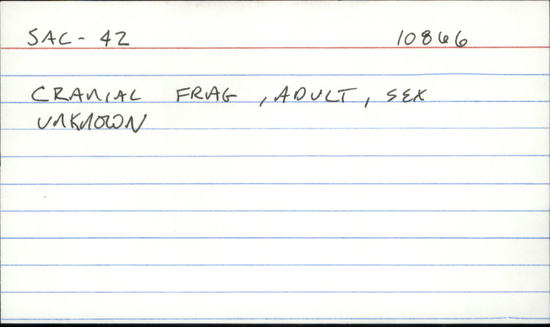 SAC-42 10866
CRANIAL FRAG, ADULT, SEX
UNKNOWN